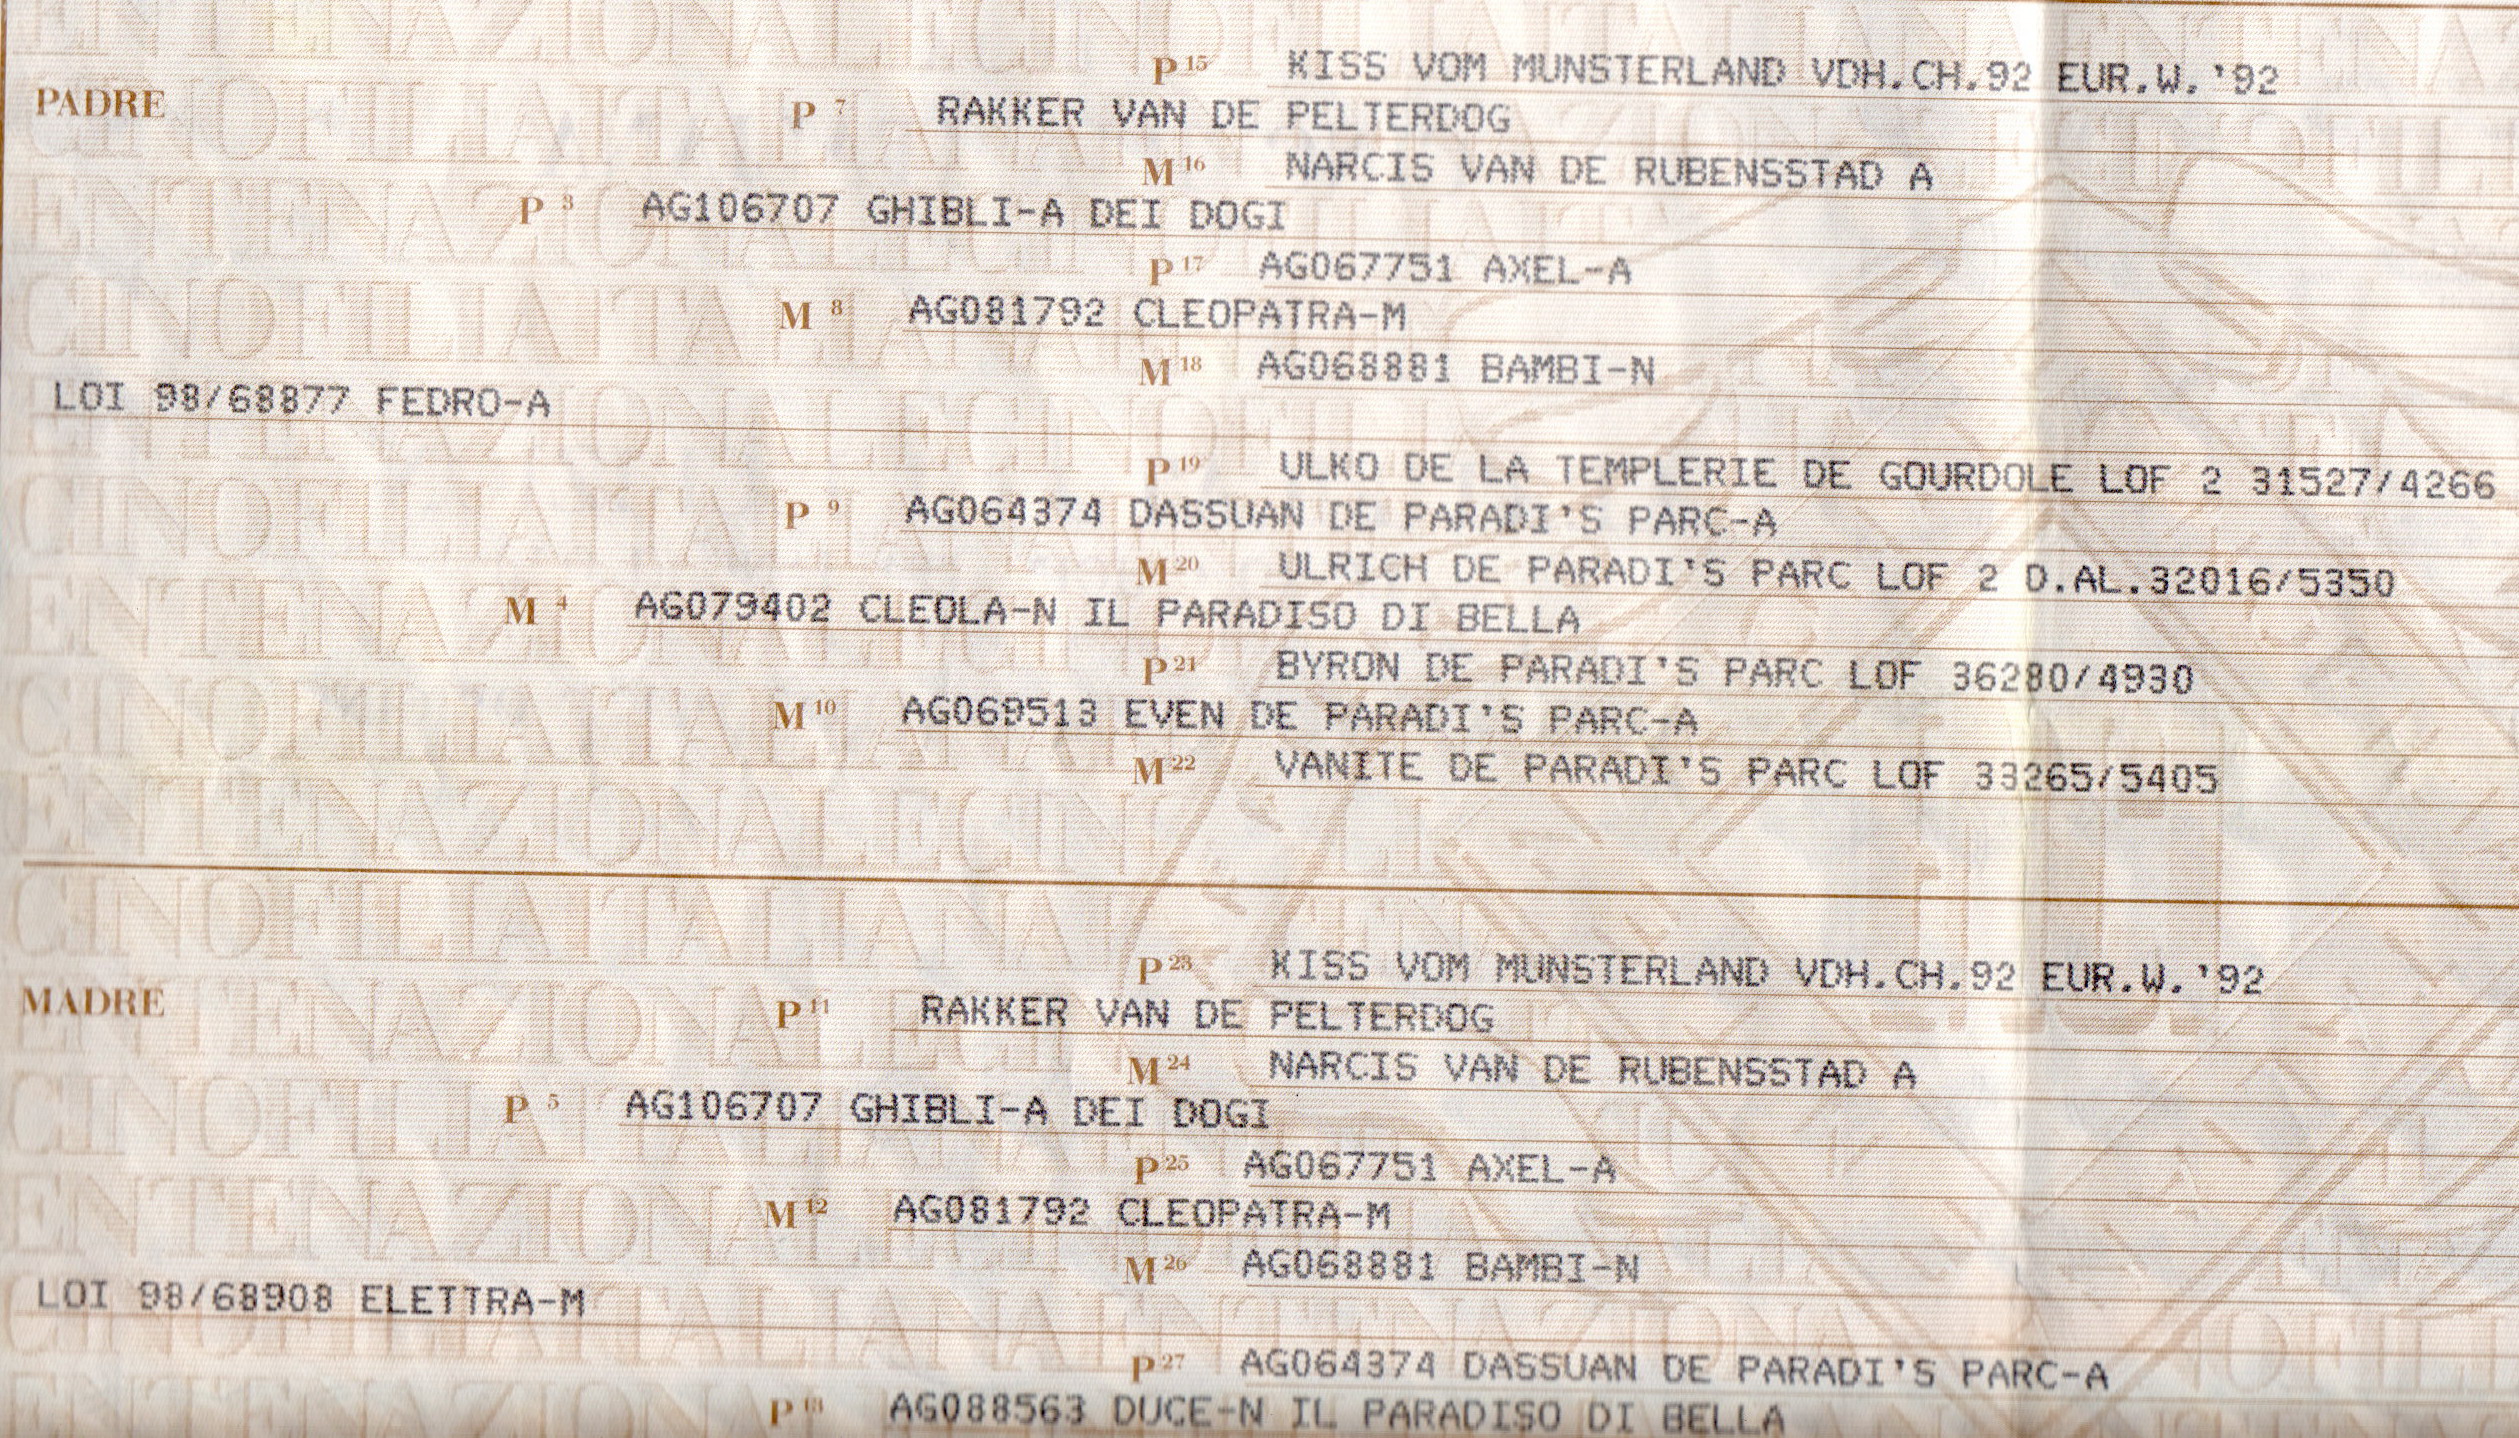 P 15 KISS VOM MUNSTERLAND VDH.CH.92 EUR.W.'92
PADRE P 7 RAKKER VAN DE PELTERDOG
M 16 NARCIS VAN DE RUBENSSTAD A
P 3 AG106707 GHIBLI-A DEI DOGI
P 17 AG067751 AXEL-A
M 8 AG081792 CLEOPATRA-M
M 18 AG068881 BAMBI-N
LOI 98/68877 FEDRO-A
P 19 ULKO DE LA TEMPLERIE DE GOURDOLE LOF 2 31527/4266
P 9 AG064374 DASSUAN DE PARADI'S PARC-A
M 20 ULRICH DE PARADI'S PARC LOF 2 D.AL.32016/5350
M 4 AG079402 CLEOLA-N IL PARADISO DI BELLA
P 21 BYRON DE PARADI'S PARC LOF 36280/4930
M 10 AG069513 EVEN DE PARADI'S PARC-A
M 22 VANITE DE PARADI'S PARC LOF 33265/5405
P 23 KISS VOM MUNSTERLAND VDH.CH.92 EUR.W.'92
MADRE P 11 RAKKER VAN DE PELTERDOG
M 24 NARCIS VAN DE RUBENSSTAD A
P 5 AG106707 GHIBLI-A DEI DOGI
P 25 AG067751 AXEL-A
M 12 AG081792 CLEOPATRA-M
M 26 AG068881 BAMBI-N
LOI 98/68908 ELETTRA-M
P 27 AG064374 DASSUAN DE PARADI'S PARC-A
P 13 AG088563 DUCE-N IL PARADISO DI BELLA